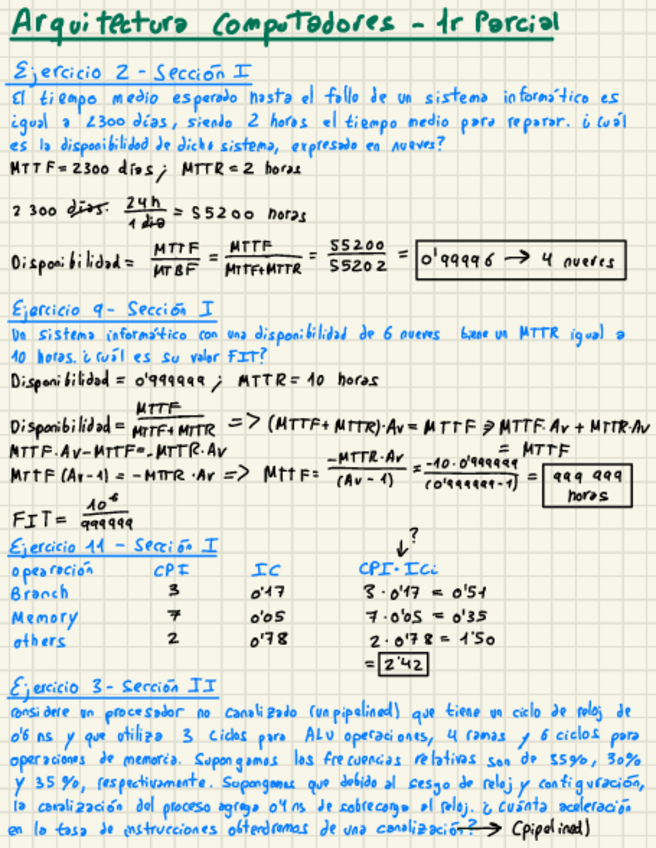 Arquitectura Computadores - 1r Parcial
Ejercicio 2 - Sección I
El tiempo medio esperado hasta el fallo de un sistema informático es
igual a 2300 días, siendo 2 horas el tiempo medio para reparar. ¿cuál
es la disponibilidad de dicho sistema, expresado en nueves?
MTTF = 2300 días; MTTR = 2 horas
2 300 días. 24h / 1 día = 55200 horas
Disponibilidad = MTTF / MTBF = MTTF / MTTF+MTTR = 55200 / 55202 = 0'99996 → 4 nueves
Ejercicio 9 - Sección I
Un sistema informático con una disponibilidad de 6 nueves tiene un MTTR igual a
10 horas. ¿cuál es su valor FIT?
Disponibilidad = 0'999999 ; MTTR = 10 horas
Disponibilidad = MTTF / MTTF + MTTR => (MTTF + MTTR)·Av = MTTF => MTTF·Av + MTTR·Av
= MTTF
MTTF·Av - MTTF = -MTTR·Av
MTTF (Av-1) = -MTTR·Av => MTTF = -MTTR·Av / (Av-1) = -10·0'999999 / (0'999999-1) = 999 999 horas
FIT = / 999999
Ejercicio 11 - Sección I
?
operación CPI IC CPI·ICi
Branch 3 0'17 3·0'17 = 0'51
Memory 7 0'05 7·0'05 = 0'35
others 2 0'78 2·0'78 = 1'50
= 2'42
Ejercicio 3 - Sección II
Considere un procesador no canalizado (unpipelined) que tiene un ciclo de reloj de
0'6 ns y que utiliza 3 ciclos para ALU operaciones, 4 ramas y 6 ciclos para
operaciones de memoria. Supongamos las frecuencias relativas son de 35%, 30%
y 35%, respectivamente. Supongamos que debido al sesgo de reloj y configuración,
la canalización del proceso agrega 0'4 ns de sobrecarga al reloj. ¿cuánta aceleración
en la tasa de instrucciones obtendremos de una canalización? → (pipelined)